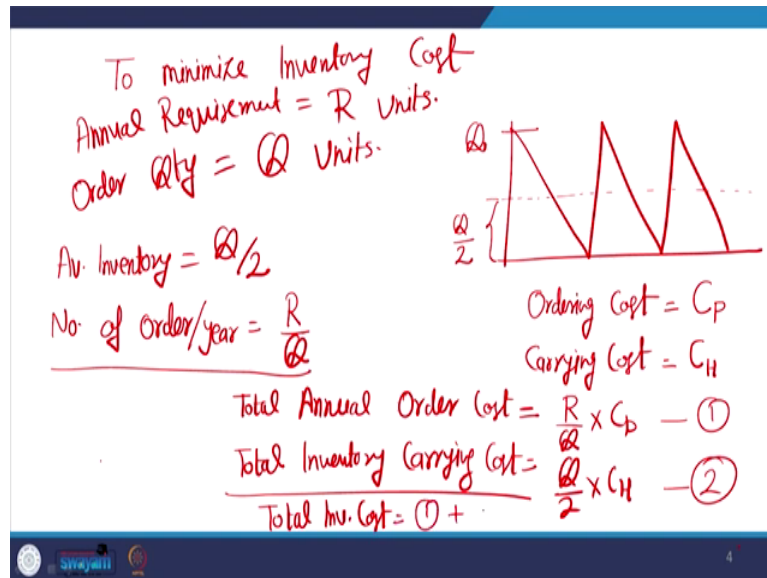 To minimize Inventory Cost
Annual Requirement = R Units.
Order Qty = Q Units.
Q
Q/2
Av. Inventory = Q/2
No. of order/year = R/Q
Ordering Cost = CP
Carrying Cost = CH
Total Annual Order Cost = R/Q × CP — ①
Total Inventory Carrying Cost = Q/2 × CH — ②
Total Inv. Cost = ① +
swayam
4